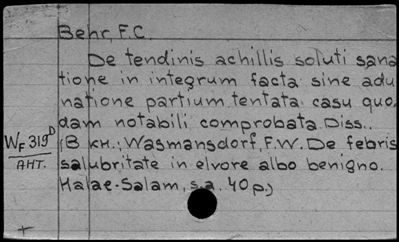 Behr, F.C.
De tendinis achillis soluti sana
tione in integrum facta sine adu
natione partium tentata casu quo-
dam notabili comprobata Diss..
(В кн.: Wasmansdorf, F.W. De febris
salubritate in elvore albo benigno.
Halae-Salam, s.a. 40p.)
WF 319D
АНТ.